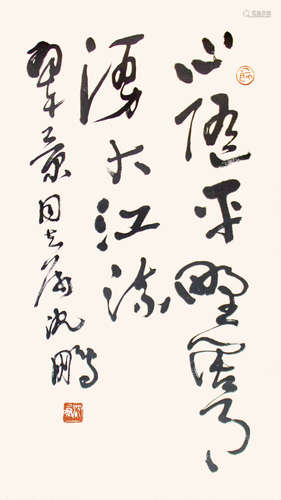 心随平野阔月
涌大江流
翠景同志属沈鹏